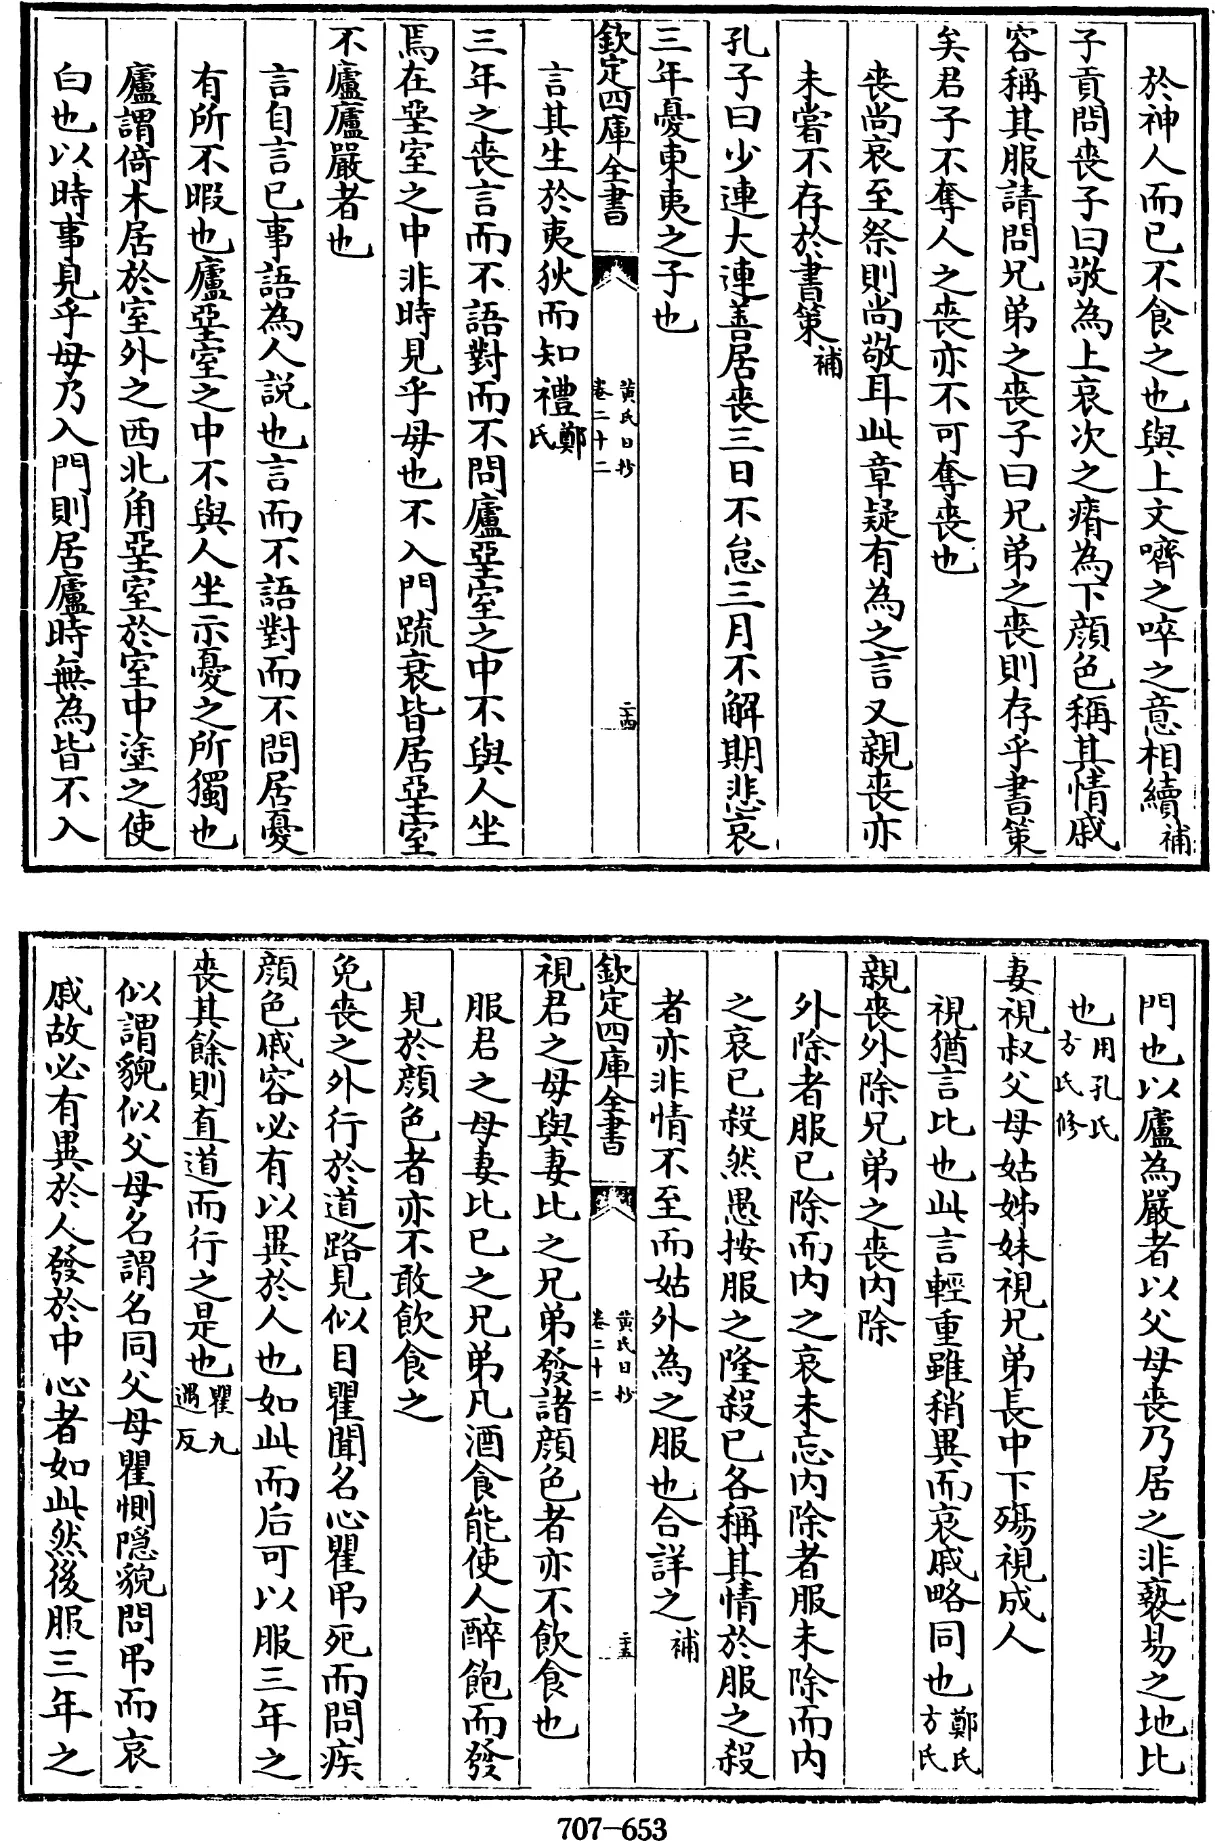 於神人而已不食之也與上文嚌之啐之意相續補
子貢問喪子曰敬為上哀次之瘠為下顔色稱其情戚
容稱其服請問兄弟之喪子曰兄弟之喪則存乎書策
矣君子不奪人之喪亦不可奪喪也
喪尚哀至祭則尚敬耳此章疑有為之言又親喪亦
未嘗不存於書策補
孔子曰少連大連善居喪三日不怠三月不解期悲哀
三年憂東夷之子也
欽定四庫全書
黄氏日抄
卷二十二
二十四
言其生於夷狄而知禮鄭氏
三年之喪言而不語對而不問廬堊室之中不與人坐
焉在堊室之中非時見乎母也不入門疏衰皆居堊室
不廬廬嚴者也
言自言已事語為人説也言而不語對而不問居憂
有所不暇也廬堊室之中不與人坐示憂之所獨也
廬謂倚木居於室外之西北角堊室於室中塗之使
白也以時事見乎母乃入門則居廬時無為皆不入
門也以廬為嚴者以父母喪乃居之非褻易之地比
也用孔氏方氏修
妻視叔父母姑姊妹視兄弟長中下殤視成人
視猶言比也此言輕重雖稍異而哀戚略同也鄭氏方氏
親喪外除兄弟之喪内除
外除者服已除而内之哀未忘内除者服未除而内
之哀已殺然愚按服之隆殺已各稱其情於服之殺
者亦非情不至而姑外為之服也合詳之補
欽定四庫全書
黄氏日抄
卷二十二
二十五
視君之母與妻比之兄弟發諸顔色者亦不飲食也
服君之母妻比已之兄弟凡酒食能使人醉飽而發
見於顔色者亦不敢飲食之
免喪之外行於道路見似目瞿聞名心瞿弔死而問疾
顔色戚容必有以異於人也如此而后可以服三年之
喪其餘則直道而行之是也瞿九遇反
似謂貌似父母名謂名同父母瞿惻隠貌問弔而哀
戚故必有異於人發於中心者如此然後服三年之
707-653